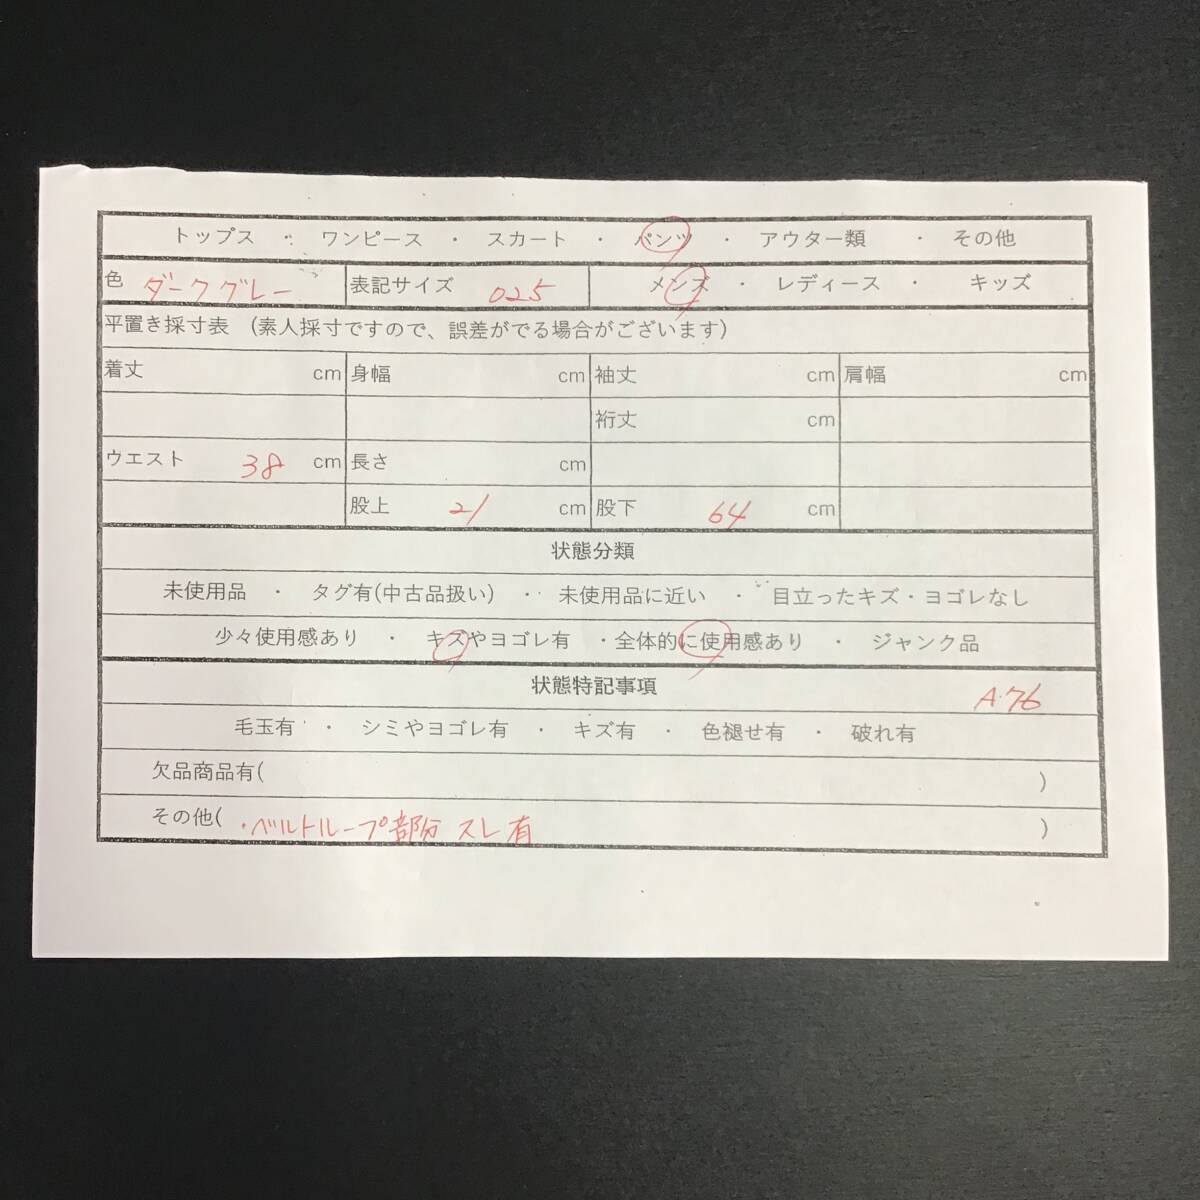 トップス ・ ワンピース ・ スカート ・ パンツ ・ アウター類 ・ その他
色 ダークグレー 表記サイズ 025 メンズ ・ レディース ・ キッズ
平置き採寸表 (素人採寸ですので、誤差がでる場合がございます)
着丈 cm 身幅 cm 袖丈 cm 肩幅 cm
裄丈 cm
ウエスト 38 cm 長さ cm
股上 21 cm 股下 64 cm
状態分類
未使用品 ・ タグ有(中古品扱い) ・ 未使用品に近い ・ 目立ったキズ・ヨゴレなし
少々使用感あり ・ キズやヨゴレ有 ・全体的に使用感あり ・ ジャンク品
状態特記事項 A・76
毛玉有 ・ シミやヨゴレ有 ・ キズ有 ・ 色褪せ有 ・ 破れ有
欠品商品有( )
その他( ・ベルトループ部分 スレ有 )